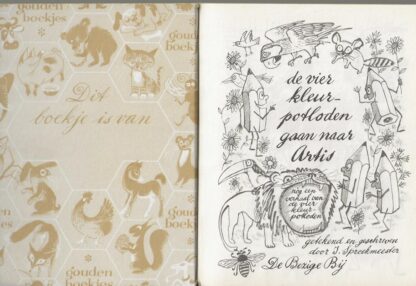 gouden
boekjes
gouden
boekjes
Dit
boekje is van
gouden
boekjes
gouden
boekjes
de vier
kleur-
potloden
gaan naar
Artis
nog een
verhaal van
de vier
kleur-
potloden
getekend en geschreven
door J. Spreekmeester
De Bezige Bij